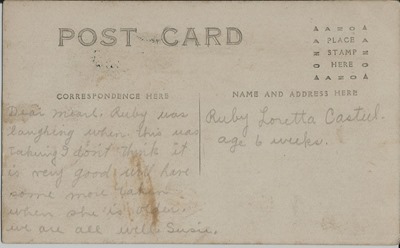 POST CARD
AZO
PLACE
STAMP
HERE
AZO
CORRESPONDENCE HERE
NAME AND ADDRESS HERE
Dear Mearl. Ruby was
laughing when this was
taking I don't think it
is very good will have
some more taken
when she is older.
we are all well Susie.
Ruby Loretta Casteel.
age 6 weeks.